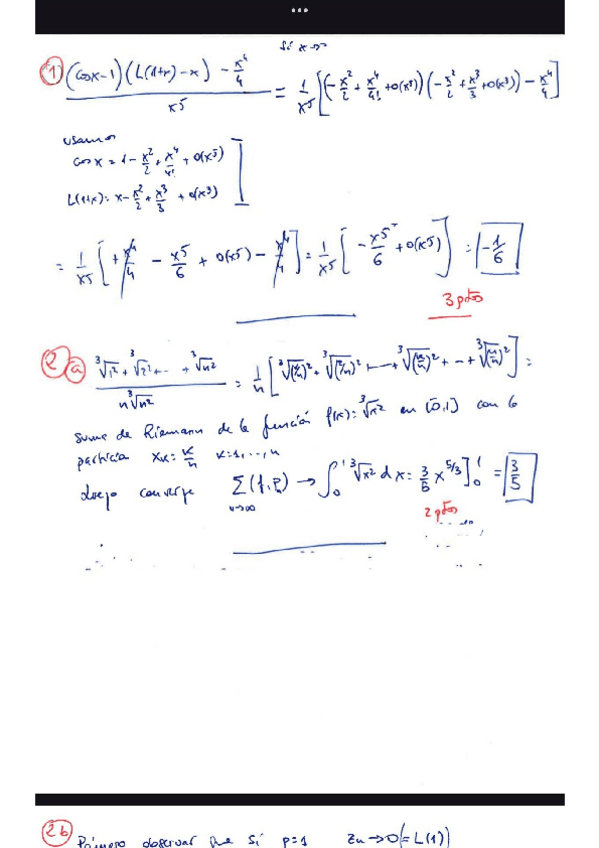 si x→0
① (cosx-1)(L(1+x)-x) - x⁴/4 / x⁵ = 1/x⁵ [(-x²/2 + x⁴/4! + o(x⁵))(-x²/2 + x³/3 + o(x³)) - x⁴/4]
usamos
cosx = 1 - x²/2 + x⁴/4! + o(x⁵)
L(1+x) = x - x²/2 + x³/3 + o(x³)
= 1/x⁵ [+x⁴/4 - x⁵/6 + o(x⁵) - x⁴/4] = 1/x⁵ [-x⁵/6 + o(x⁵)] = -1/6
3 ptos
② ⓐ ∛1² + ∛2² + ... + ∛n² / n∛n² = 1/n [∛(1/n)² + ∛(2/n)² + ... + ∛(k/n)² + ... + ∛(n/n)²] =
Suma de Riemann de la función f(x) = ∛x² en [0,1] con la
partición xₖ = k/n k=1,...,n
luego converge Σ(f,Pₙ) → ∫₀¹ ∛x² dx = 3/5 x^(5/3)]₀¹ = 3/5
n→∞
2 ptos
2b Primero observar que si p=1 zn→0(=L(1))